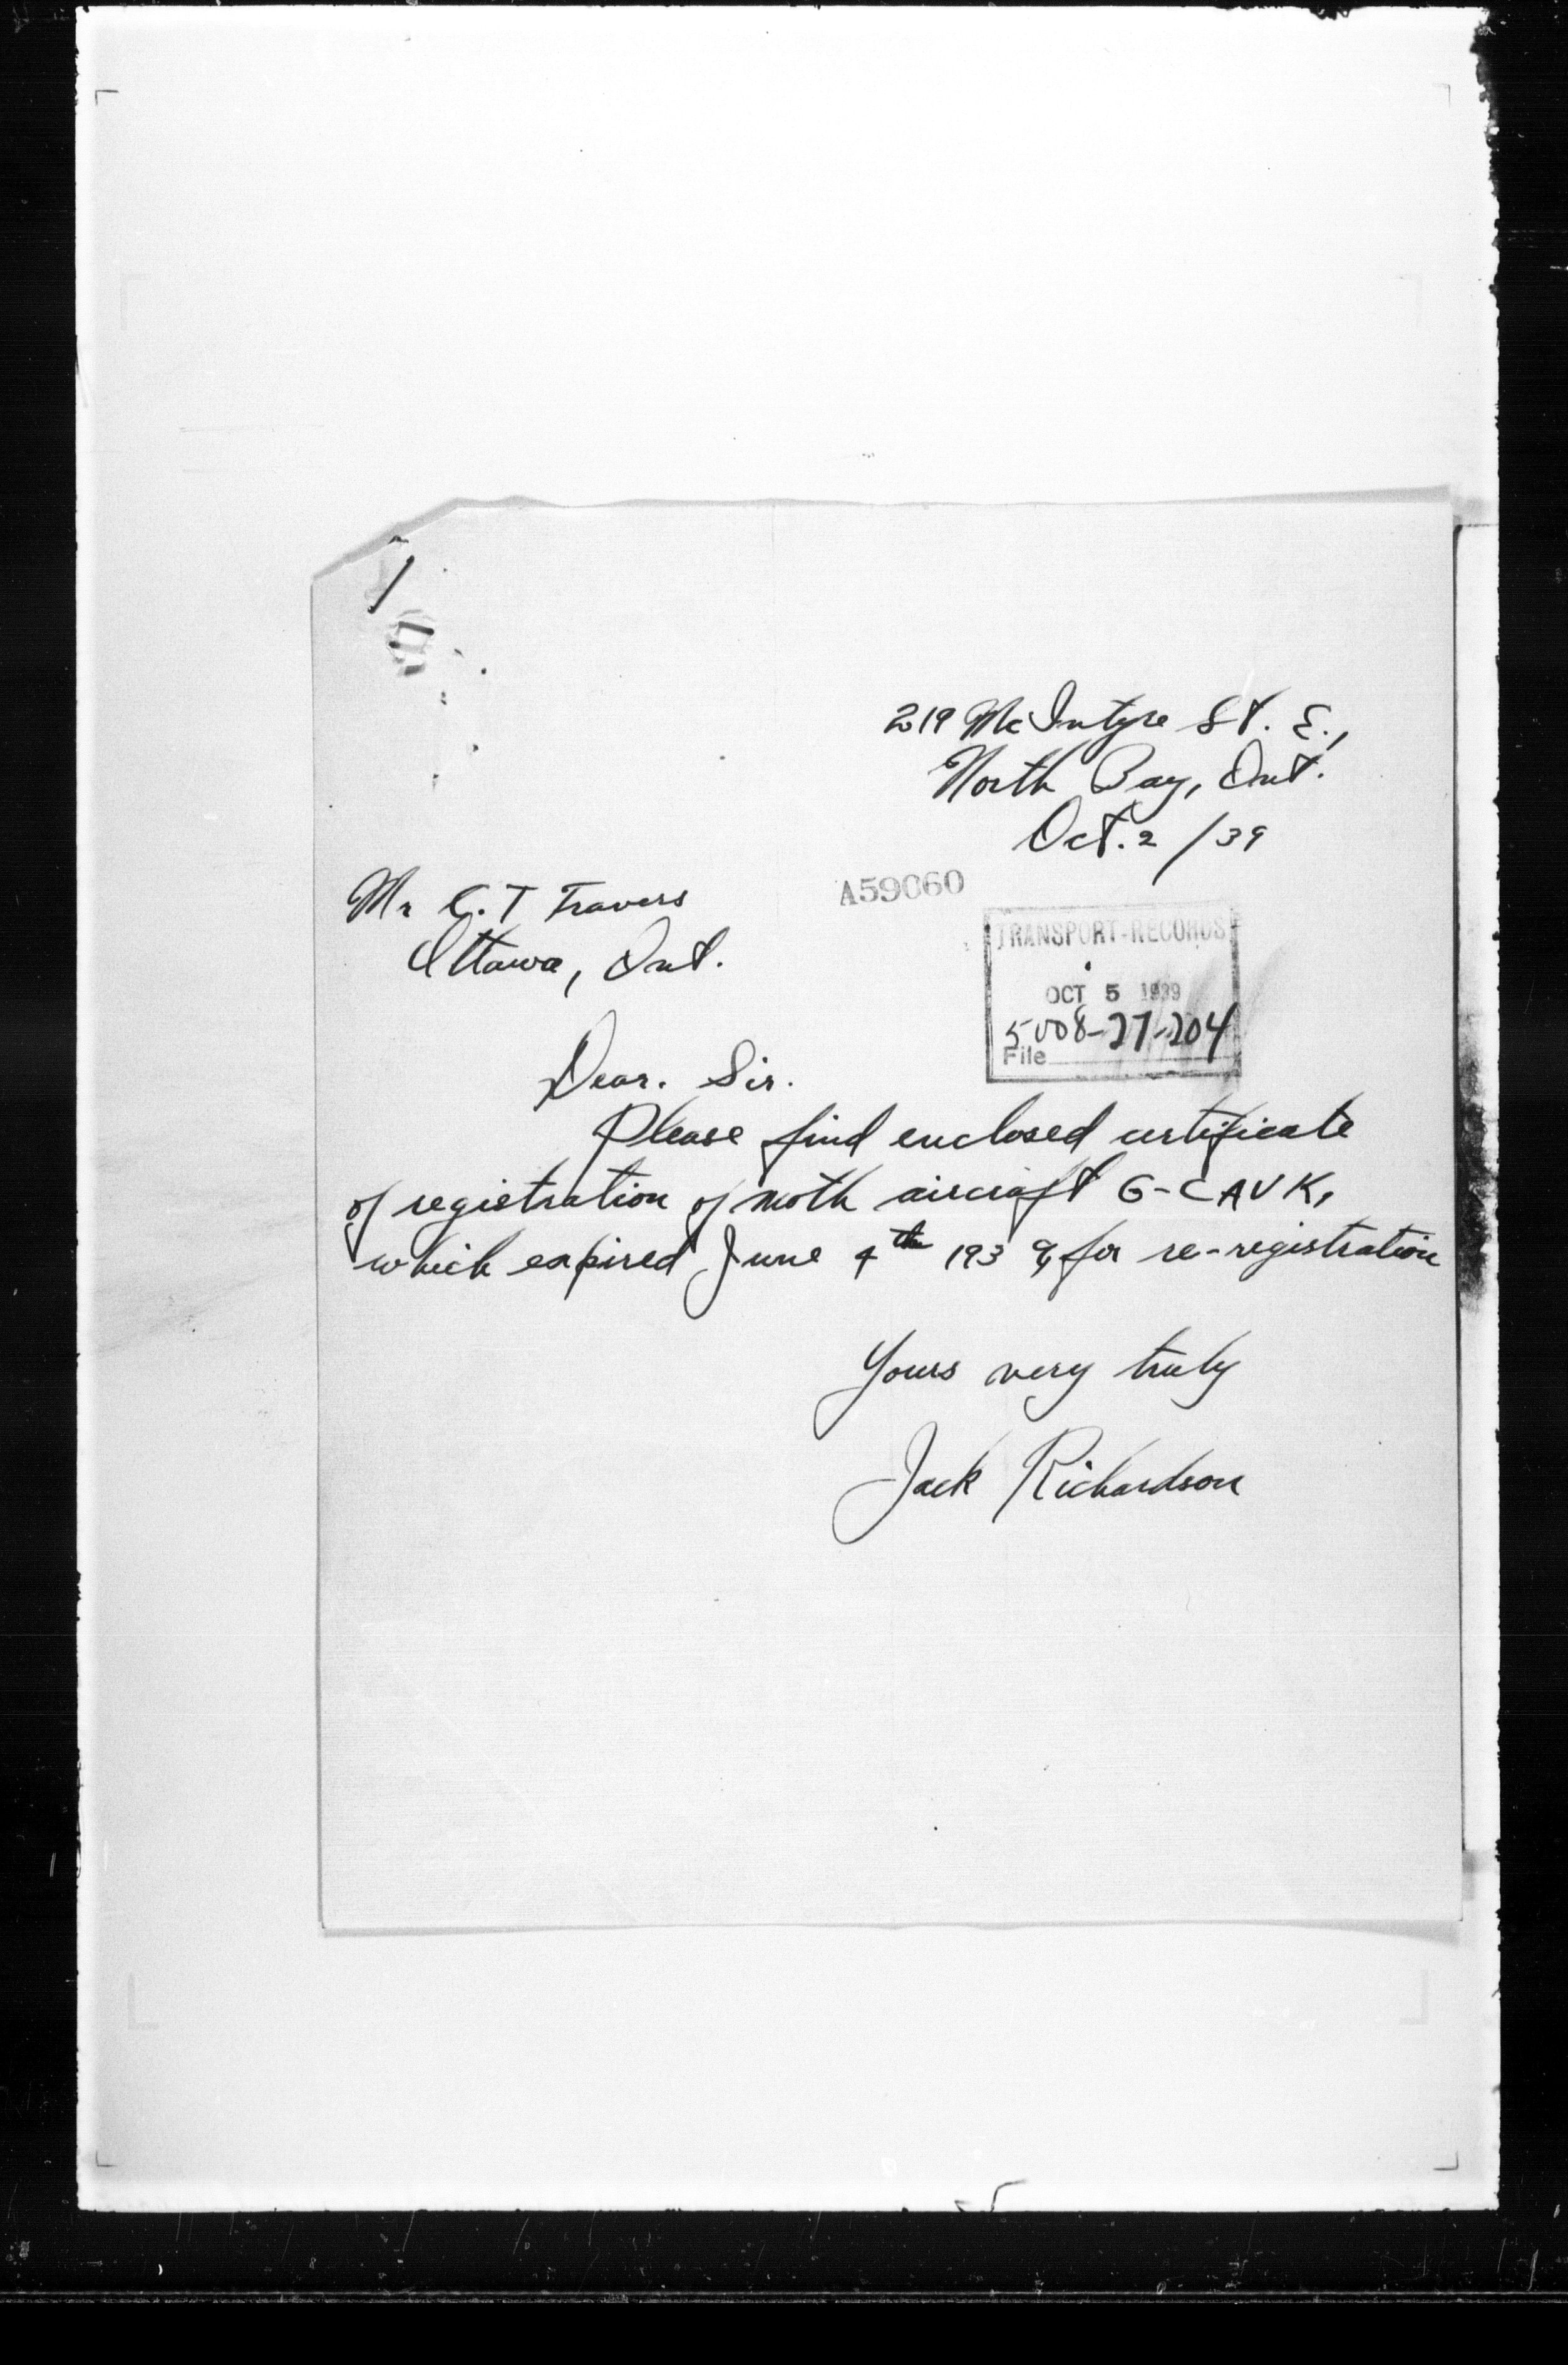 219 McIntyre St. E.,
North Bay, Ont.
Oct. 2 /39
A59060
Mr C. T Travers
Ottawa, Ont.
TRANSPORT-RECORDS
OCT 5 1939
5008-27-204
File
Dear. Sir.
Please find enclosed certificate
of registration of moth aircraft G-CAVK,
which expired June 4th 1939, for re-registration
Yours very truly
Jack Richardson